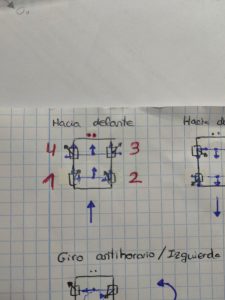 Hacia delante
Hacia de
4 3
1 2
Giro antihorario/Izquierda